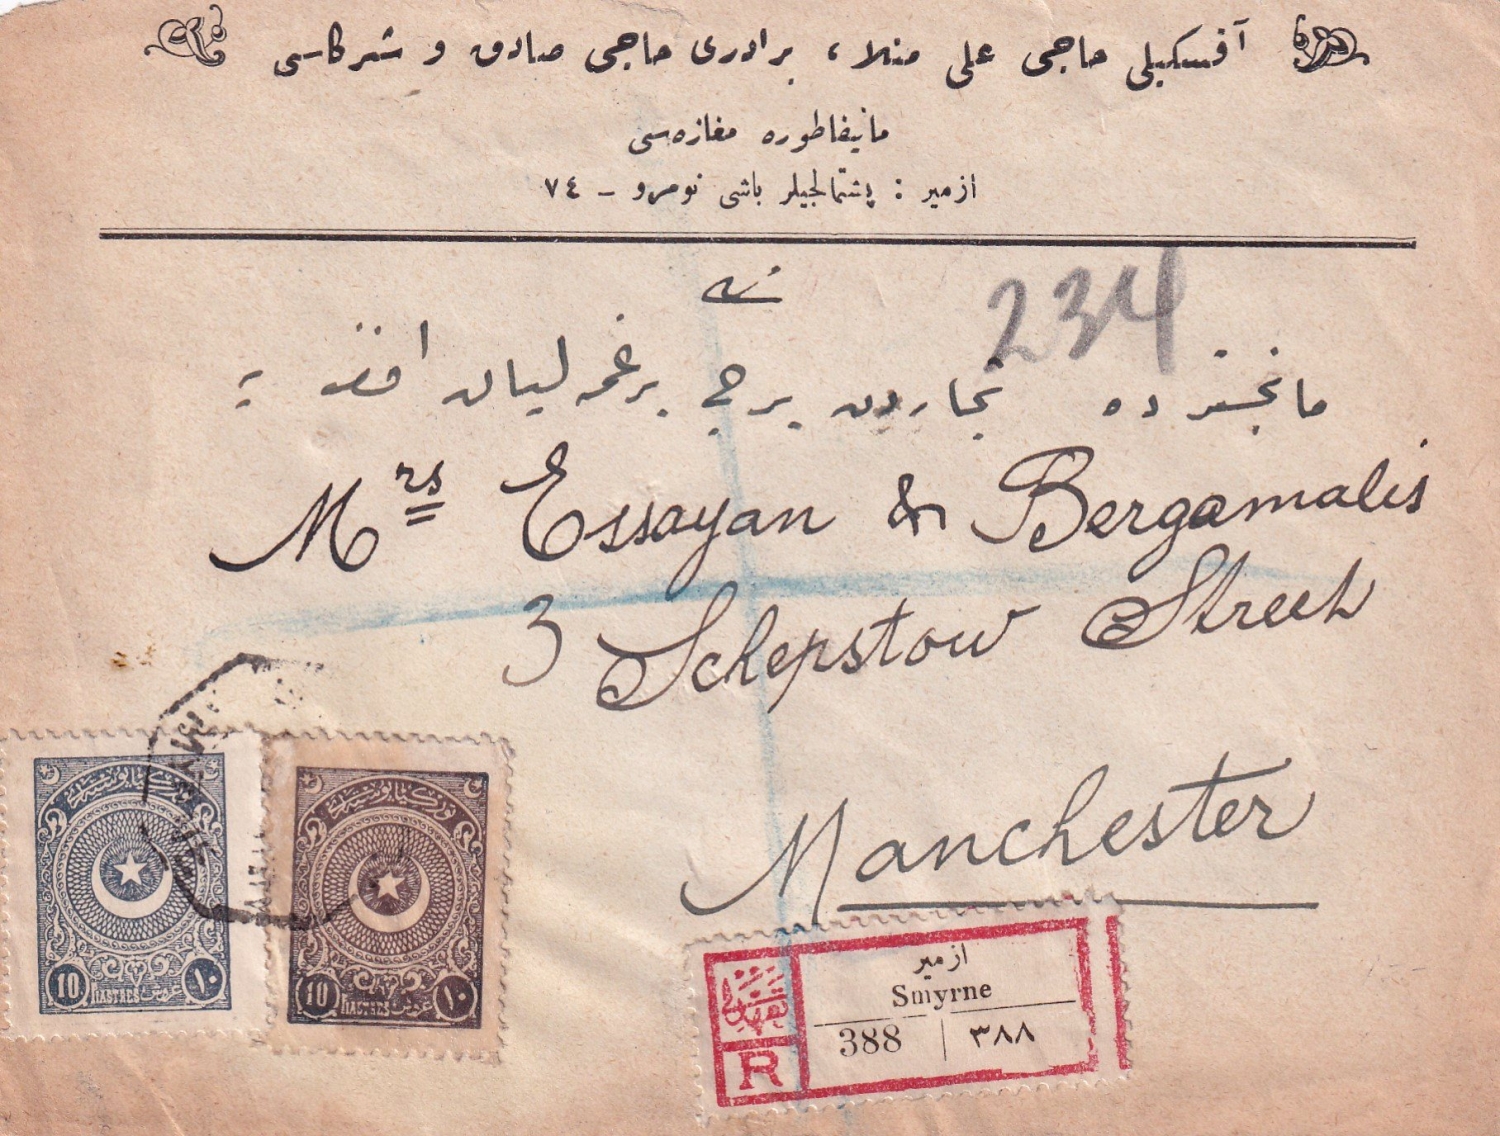 آفسكیلی حاجی علی منلا ، برادری حاجی صادق و شركاسی
مانیفاطوره مغازه‌سی
ازمیر : پشتمالجیلر باشی نومرو - ٧٤
234
مانچسترده تجاردن
Mrs Essayan & Bergamalis
3 Schepstow Street
Manchester
10 PIASTRES غروش ١٠
10 PIASTRES غروش ١٠
ازمیر
Smyrne
388 | ٣٨٨
R